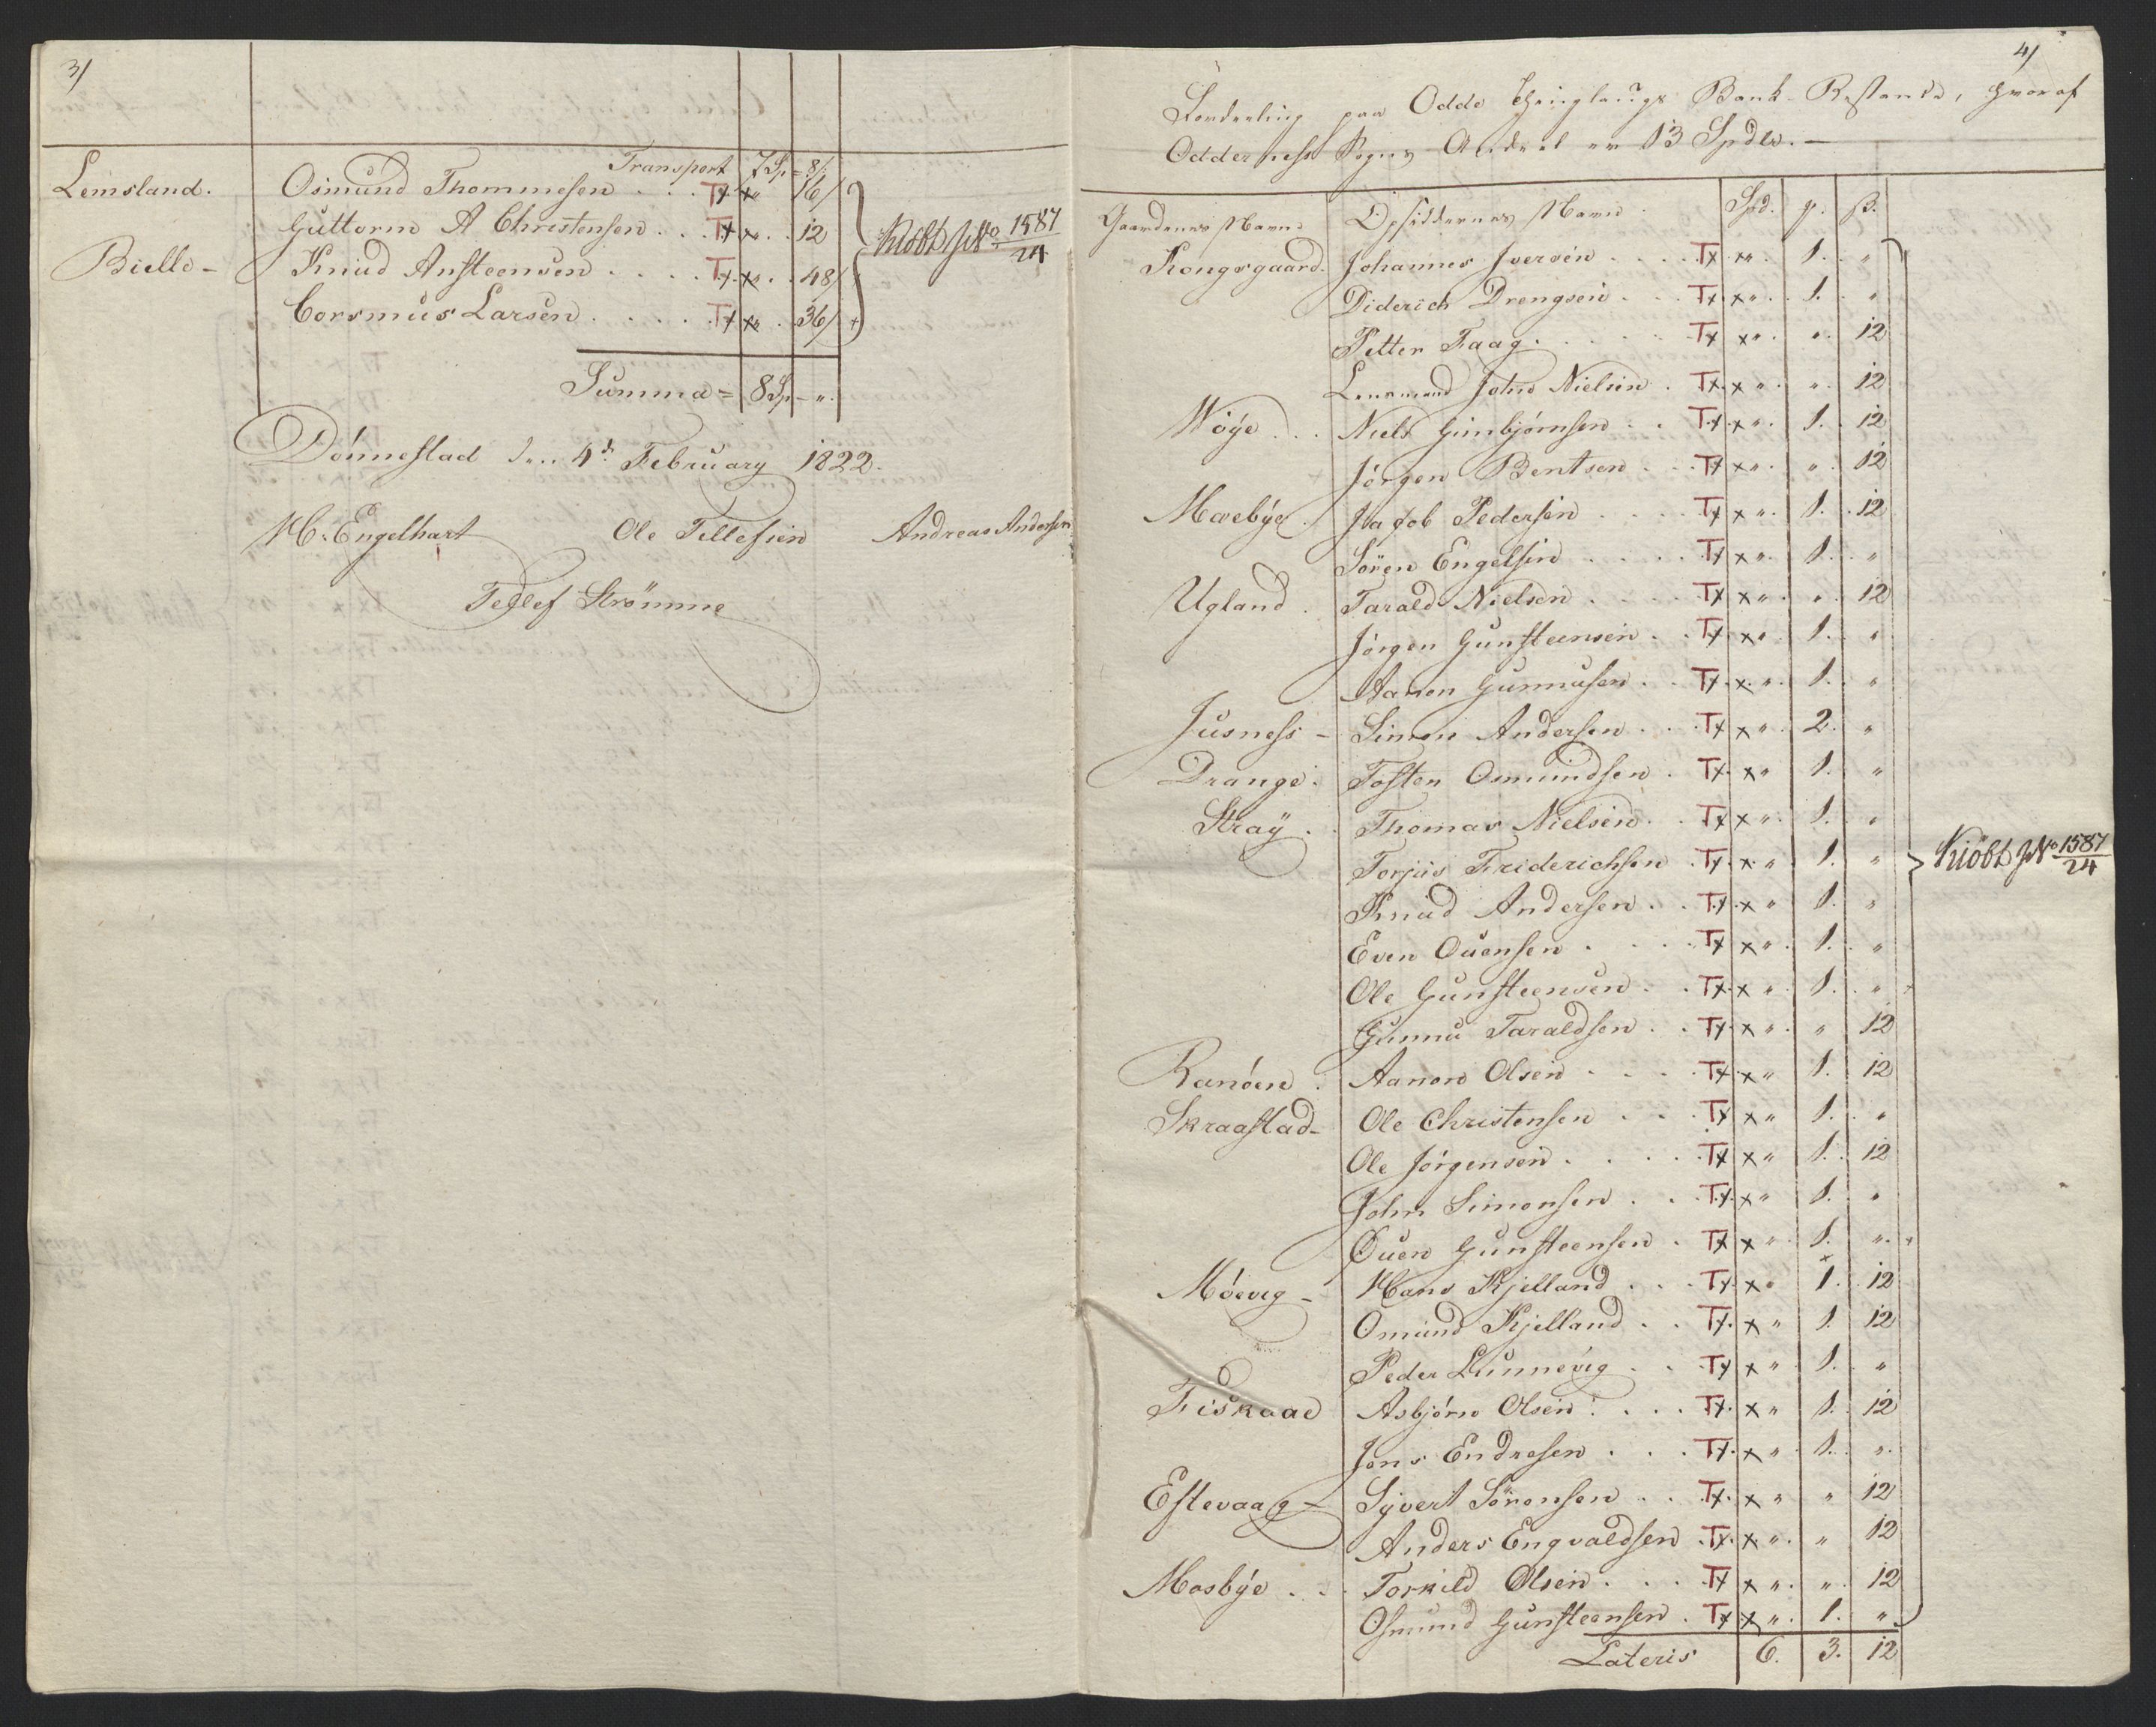 3/
Transport 7 Sp = 8/:
Leinsland. Osmund Thommesen . . Tx x „ 16/
Guttorm A Christensen . . Tx x „ . 12
Kiöbt J No 1587/24
Bielle - Knud Ansteensen . . . . Tx x . . 48/
Corsmus Larsen . . . . . Tx x „ . 36/ +
Summa = 8 Sp - „.
Dönnestad den 4de February 1822.
H. Engelhart Ole Tellefsen Andreas Andersen
Tellef Strömme
4/
Fordeling paa Odde Thinglaugs Bank-Restance, hvoraf
Odderness Sogns Andeel er 13 Spdlr. —
Gaardenes Navne Opsiddernes Navne Spd. ƴ. ß.
Kongsgaard. Johannes Iversen . . . . Tx x „ . 1. . „
Diderich Drengsen . . . Tx x „ . 1. . „
Petter Faag . . . . . Tx x „ . „ . 12
Lensmand John Nielsen . Tx x „ . „ . 12
Wöye . . . Niels Gunbjörnsen . . Tx x „ . 1. . 12
Jörgen Bentsen . . . Tx x „ . „ . 12
Moebÿe . Jacob Pedersen . . . . Tx x „ . 1. . 12
Sören Engelsen . . . . . Tx x „ . 1. . „
Ugland . Tarald Nielsen . . . . Tx x „ . „ . 12
Jörgen Gunsteensen . . Tx x „ . 1. . „
Aanon Gunnusen . . Tx x „ . 1. . „
Jusness - Simon Andersen . . . Tx x „ . 2. . „
Drange . Tosten Osmundsen . Tx x „ 1. . „
Straÿ . . Thomas Nielsen . . Tx x „ . 1. . „
Torjus Friderichsen . Tx x „ . 1. . „
Kiöbt J No 1587/24
Knud Andersen . . Tx x „ . 1. . „
Even Ouensen . . . . Tx x „ . 1. . „
Ole Gunsteensen . . Tx x „ . 1. . „
Gunnu Taraldsen . . Tx x „ . „ 12
Ranöen . Aanon Olsen . . . . Tx x „ 1. 12
Skraastad - Ole Christensen . . . Tx x „ 1. . „
Ole Jörgensen . . . . Tx x „ 1. 12
John Simonsen . . . Tx x „ 1. . „
Ouen Gunsteensen . Tx x „ . 1. „ .
Möevig - Hans Kjelland . . . Tx x „ 1. . 12
Omund Kjelland . . Tx. x „ . 1. 12
Peder Lunnevig . . Tx x „ . 1. . „
Fiskaae Asbjörn Olsen . . . . Tx. x „ 1. . 12
Jens Endresen . . . Tx. x „ . 1. . „.
Eftevaag - Syvert Sörensen . . Tx. x „ „ 12
Anders Engvaldsen . Tx. x „ . „ 12
Mosbÿe . . . Torkild Olsen . . . Tx x „ . „ . 12
Osmund Gunsteensen . Tx x „ . 1. . „.
Lateris 6. 3. 12